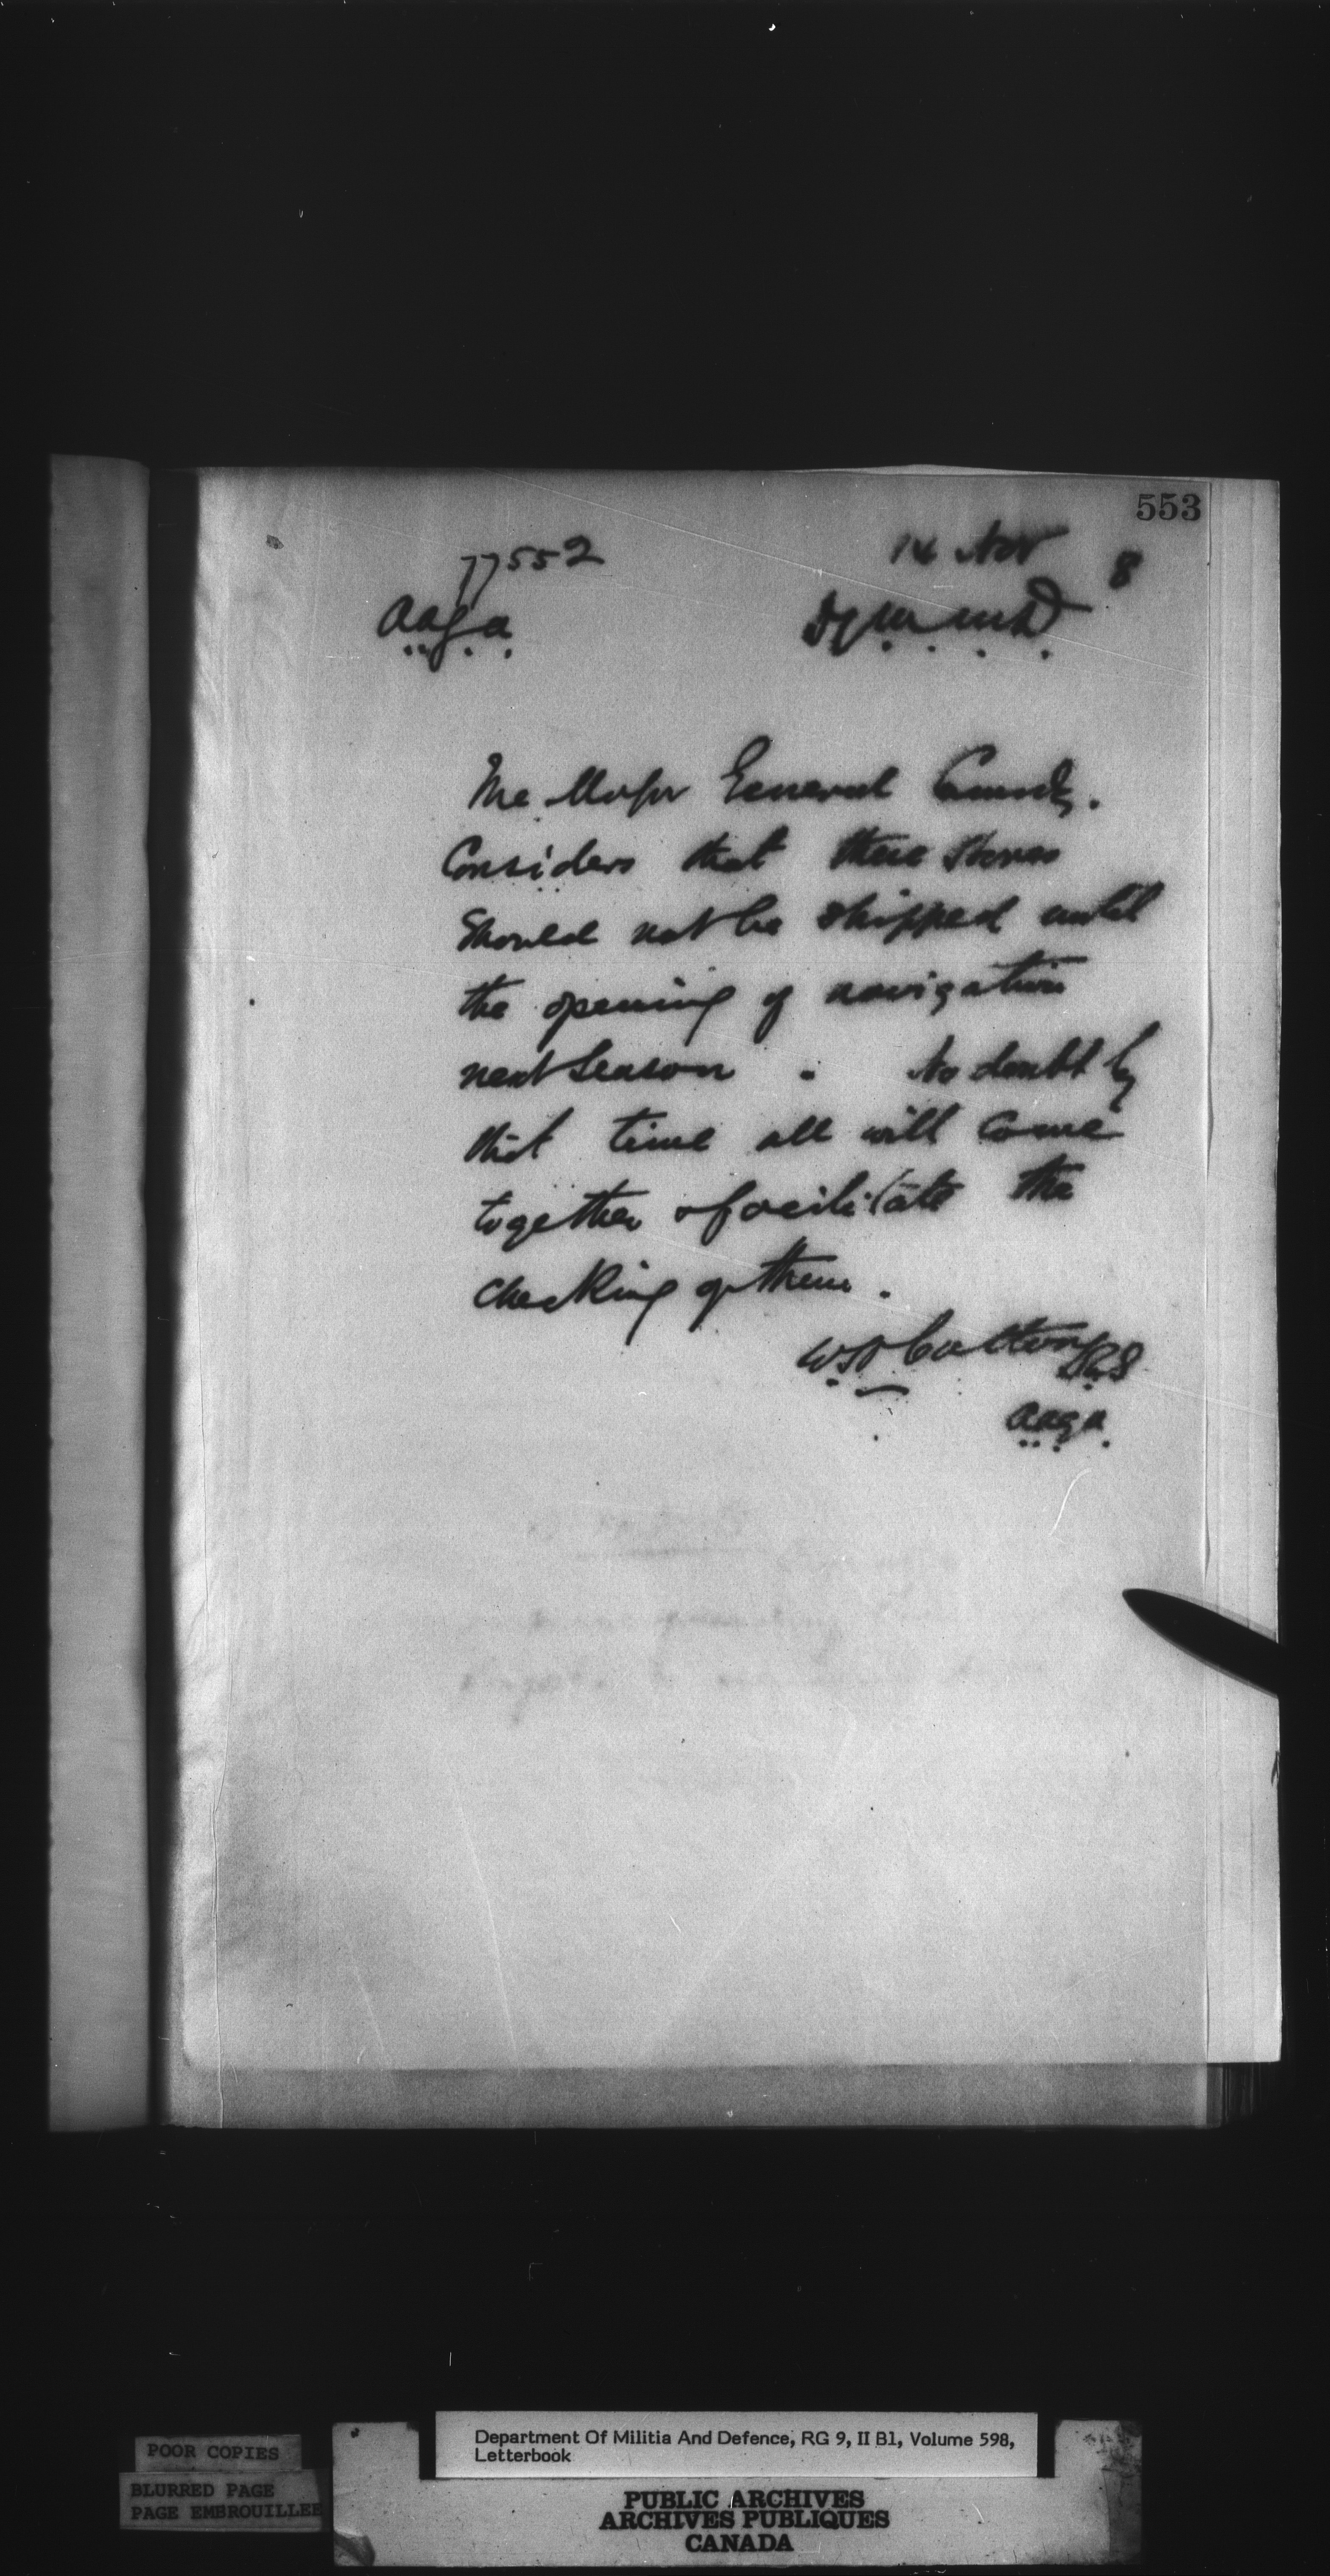 553
77552
14 Nov
8
a.a.g.a.
The Major General Comdg.
Considers that these Stores
Should not be shipped until
the opening of navigation
next Season . No doubt by
that time all will come
together & facilitate the
checking of them .
Cotton
a.a.g.a.
POOR COPIES
BLURRED PAGE
PAGE EMBROUILLEE
Department Of Militia And Defence, RG 9, II B1, Volume 598,
Letterbook
PUBLIC ARCHIVES
ARCHIVES PUBLIQUES
CANADA